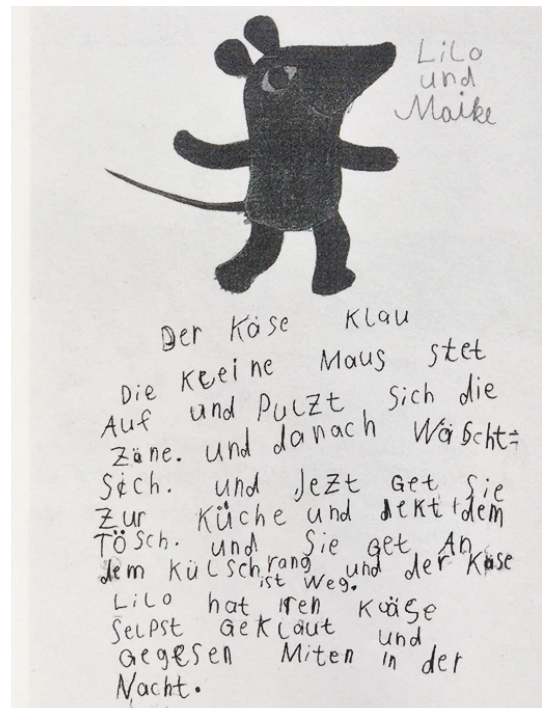 Lilo
und
Maike
Der Käse Klau
Die kleine Maus stet
Auf und Puczt Sich die
Zäne. und danach Wäscht=
Sich. und Jezt get Sie
Zur Küche und dekt dem
TöSch. und Sie get An
dem Külschrang und der Käse
ist weg.
Lilo hat iren Käse
Selpst geklaut und
gegesen Miten in der
Nacht.